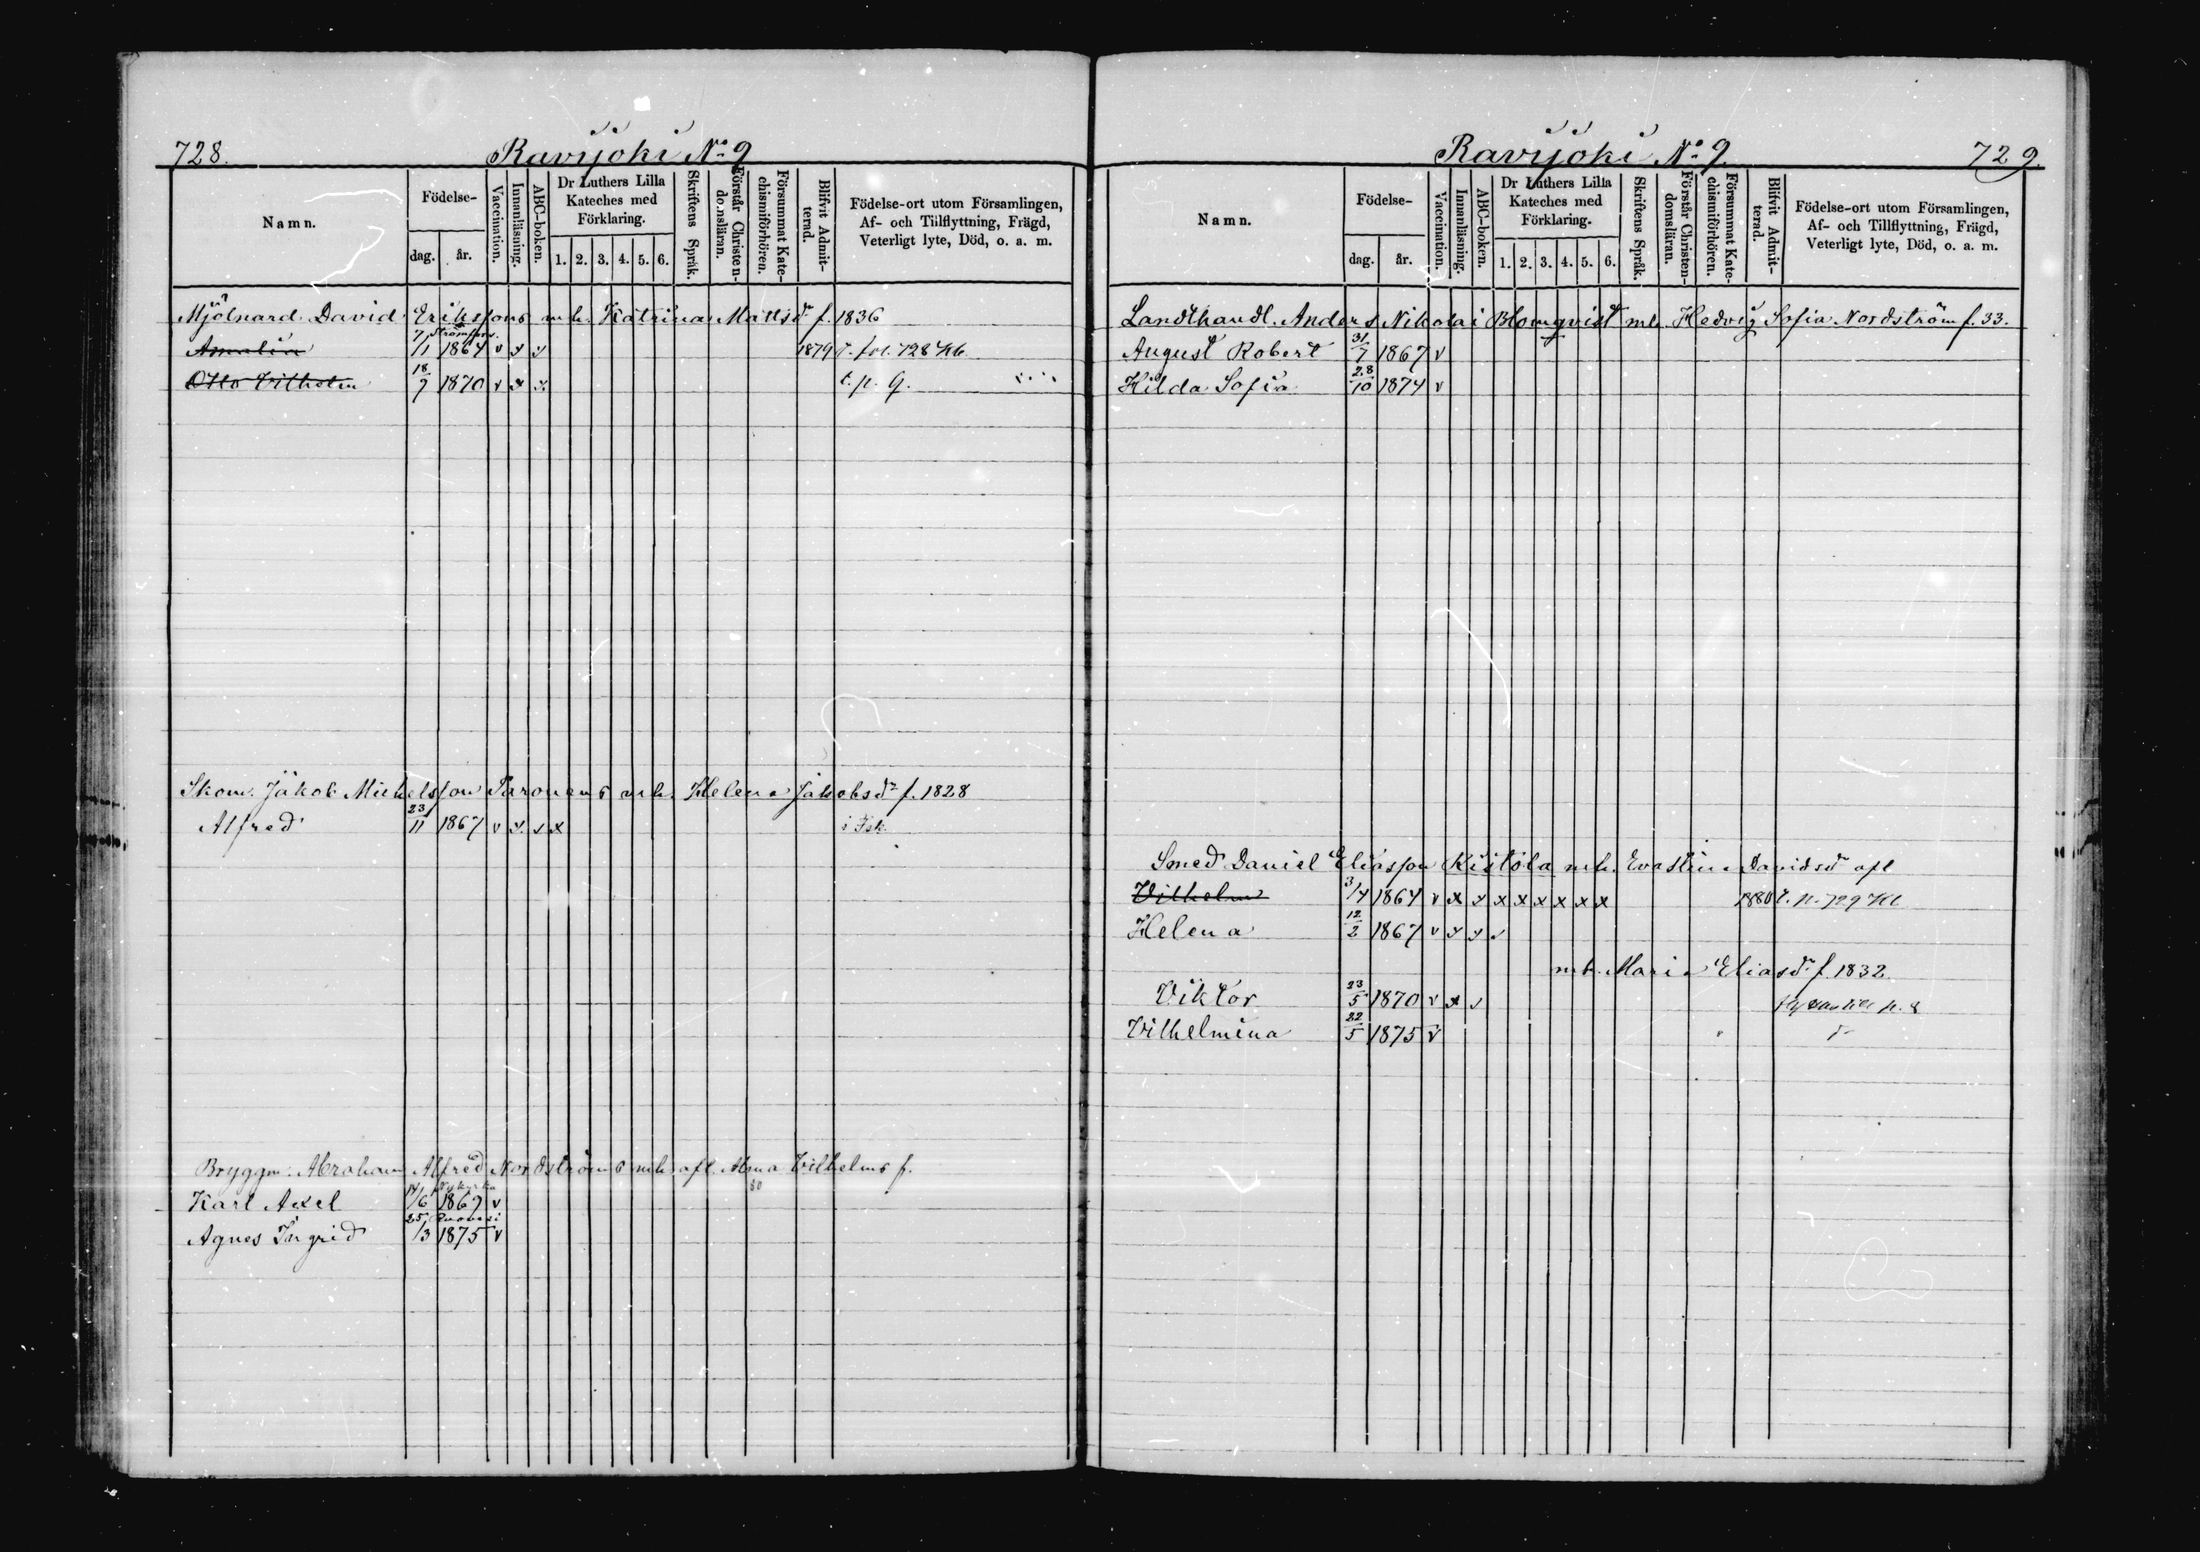 728. Ravijoki No 9
Namn. Födelse- dag. år. Vaccination. Innanläsning. ABC-boken. Dr Luthers Lilla Kateches med Förklaring. 1. 2. 3. 4. 5. 6. Skriftens Språk. Förstår Christendomsläran. Försummat Katechismiförhören. Blifvit Admitterad. Födelse-ort utom Församlingen, Af- och Tillflyttning, Frägd, Veterligt lyte, Död, o. a. m.
Mjölnard. David Erikssons m. h. Katrina Mattsdr f. 1836
Strömfors
Amalia 7/11 1864 v x x 1879 t. fol. 728 Kb
Otto Vilhelm 18/7 1870 v x x t. p. 9.
Skom. Jakob Michelsson Paronens m. h. Helena Jakobsdr f. 1828
Alfred 23/11 1867 v x x x
Bryggm. Abraham Alfred Nordströms m. h. afl. Alma Vilhelms f.
Nykyrka
Karl Axel 14/6 1869 v
Agnes Ingrid 25/3 1875 v
Ravijoki No 9. 729.
Namn. Födelse- dag. år. Vaccination. Innanläsning. ABC-boken. Dr Luthers Lilla Kateches med Förklaring. 1. 2. 3. 4. 5. 6. Skriftens Språk. Förstår Christendomsläran. Försummat Katechismiförhören. Blifvit Admitterad. Födelse-ort utom Församlingen, Af- och Tillflyttning, Frägd, Veterligt lyte, Död, o. a. m.
Landthandl. Anders Nikolai Blomqvist m h. Hedvig Sofia Nordström f. 33.
August Robert 31/7 1867 v
Hilda Sofia 28/10 1874 v
Smed Daniel Eliasson Kistola m. h. Evastina Davidsdr afl
Vilhelm 3/4 1864 v x x x x x x x x 1880 t. p. 729 Kb
Helena 12/2 1867 v x x x
m. h. Maria Eliasdr f. 1832
Viktor 23/5 1870 v x x
Vilhelmina 22/5 1875 v